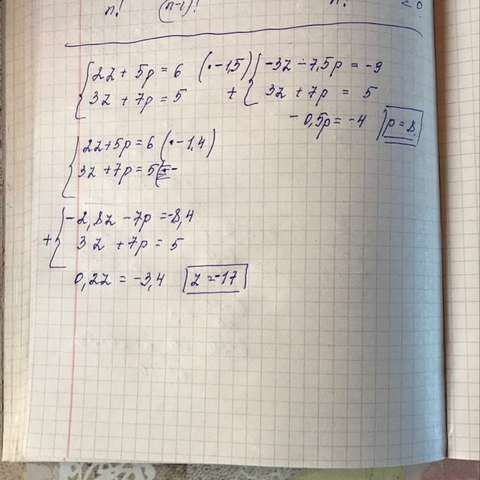 n! (n-1)! n! ≤ 0
{ 2z + 5p = 6 (· -1,5)
3z + 7p = 5
+ { -3z - 7,5p = -9
3z + 7p = 5
- 0,5p = -4 p = 8
{ 2z + 5p = 6 (· -1,4)
3z + 7p = 5
+ { -2,8z - 7p = -8,4
3z + 7p = 5
0,2z = -3,4 z = -17